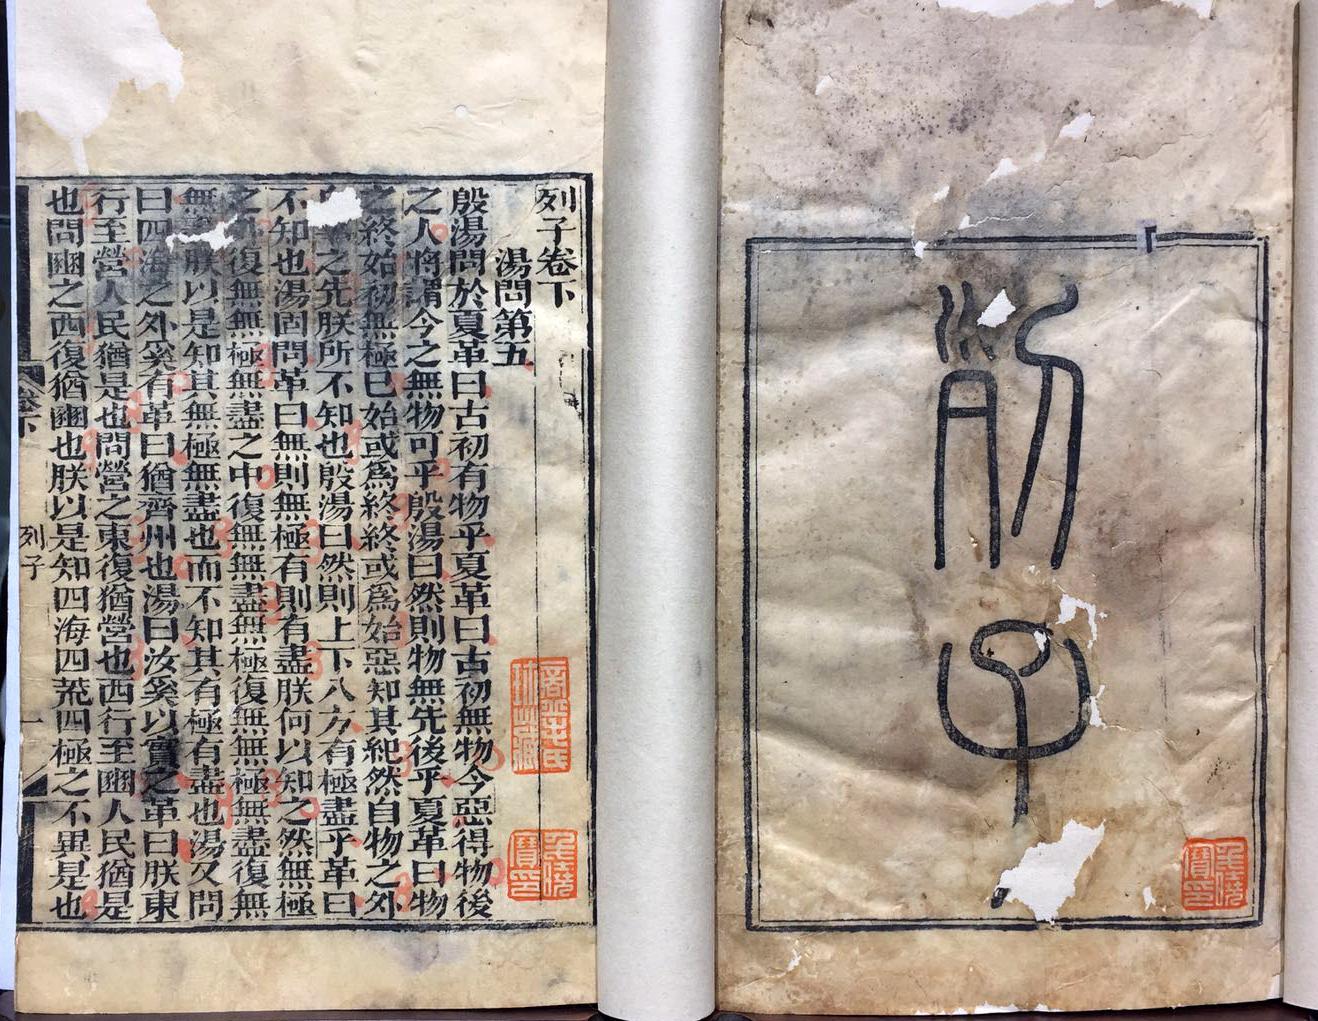 列子
列子卷下
湯問第五
殷湯問於夏革曰古初有物乎夏革曰古初無物今惡得物後
之人將謂今之無物可乎殷湯曰然則物無先後乎夏革曰物
之終始初無極已始或爲終終或爲始惡知其紀然自物之外
之先朕所不知也殷湯曰然則上下八方有極盡乎革曰
不知也湯固問革曰無則無極有則有盡朕何以知之然無極
之復無無極無盡之中復無無盡無極復無無極無盡復無
無朕以是知其無極無盡也而不知其有極有盡也湯又問
曰四海之外奚有革曰猶齊州也湯曰汝奚以實之革曰朕東
行至營人民猶是也問營之東復猶營也西行至豳人民猶是
也問豳之西復猶豳也朕以是知四海四荒四極之不異是也
卷下 列子 一